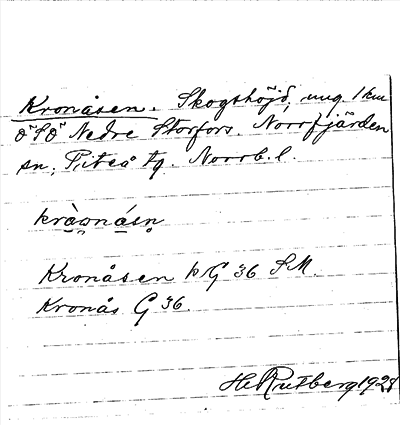 Kronåsen. Skogshöjd, ung. 1 km
Ö "SÖ" Nedre Storfors. Norrfjärden
sn, Piteå tg. Norrb. l.
kràωnásn̥
Kronåsen þ G 36 SM.
Kronås G 36.
H. Rutberg 1928